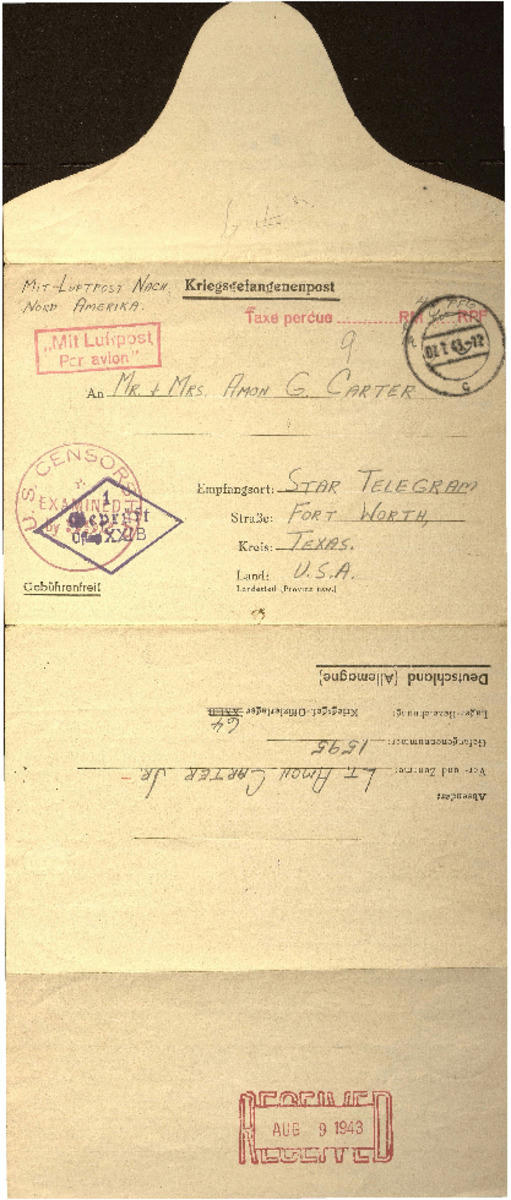 MIT-LUFTPOST NACH
NORD AMERIKA.
Kriegsgefangenenpost
Taxe perçue ........... RM ..... RPF
„Mit Luftpost
Par avion"
9
An MR. + MRS. AMON G. CARTER
U.S. CENSORSHIP
EXAMINED
by
1
Geprüft
Oflag XXI B
Empfangsort: STAR TELEGRAM
Straße: FORT WORTH,
Kreis: TEXAS.
Land: U.S.A.
Landesteil (Provinz usw.)
Gebührenfrei!
Deutschland (Allemagne)
Lager-Bezeichnung: Kriegsgef.-Offizierlager XXI B
64
Gefangenennummer: 1595
Vor- und Zuname: LT. AMON CARTER JR.
Absender:
RECEIVED
AUG 9 1943
RECEIVED